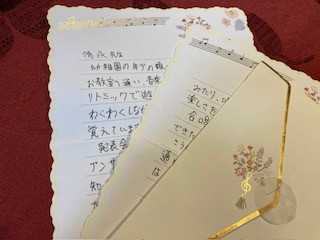 徳永先生
幼稚園の年少の頃
お教室へ通い、音楽
リトミックで遊
わくわくしなが
覚えていま
発表会
アンサ
勉
た
みたり、
楽しさを
合唱
できた
こう
通
は